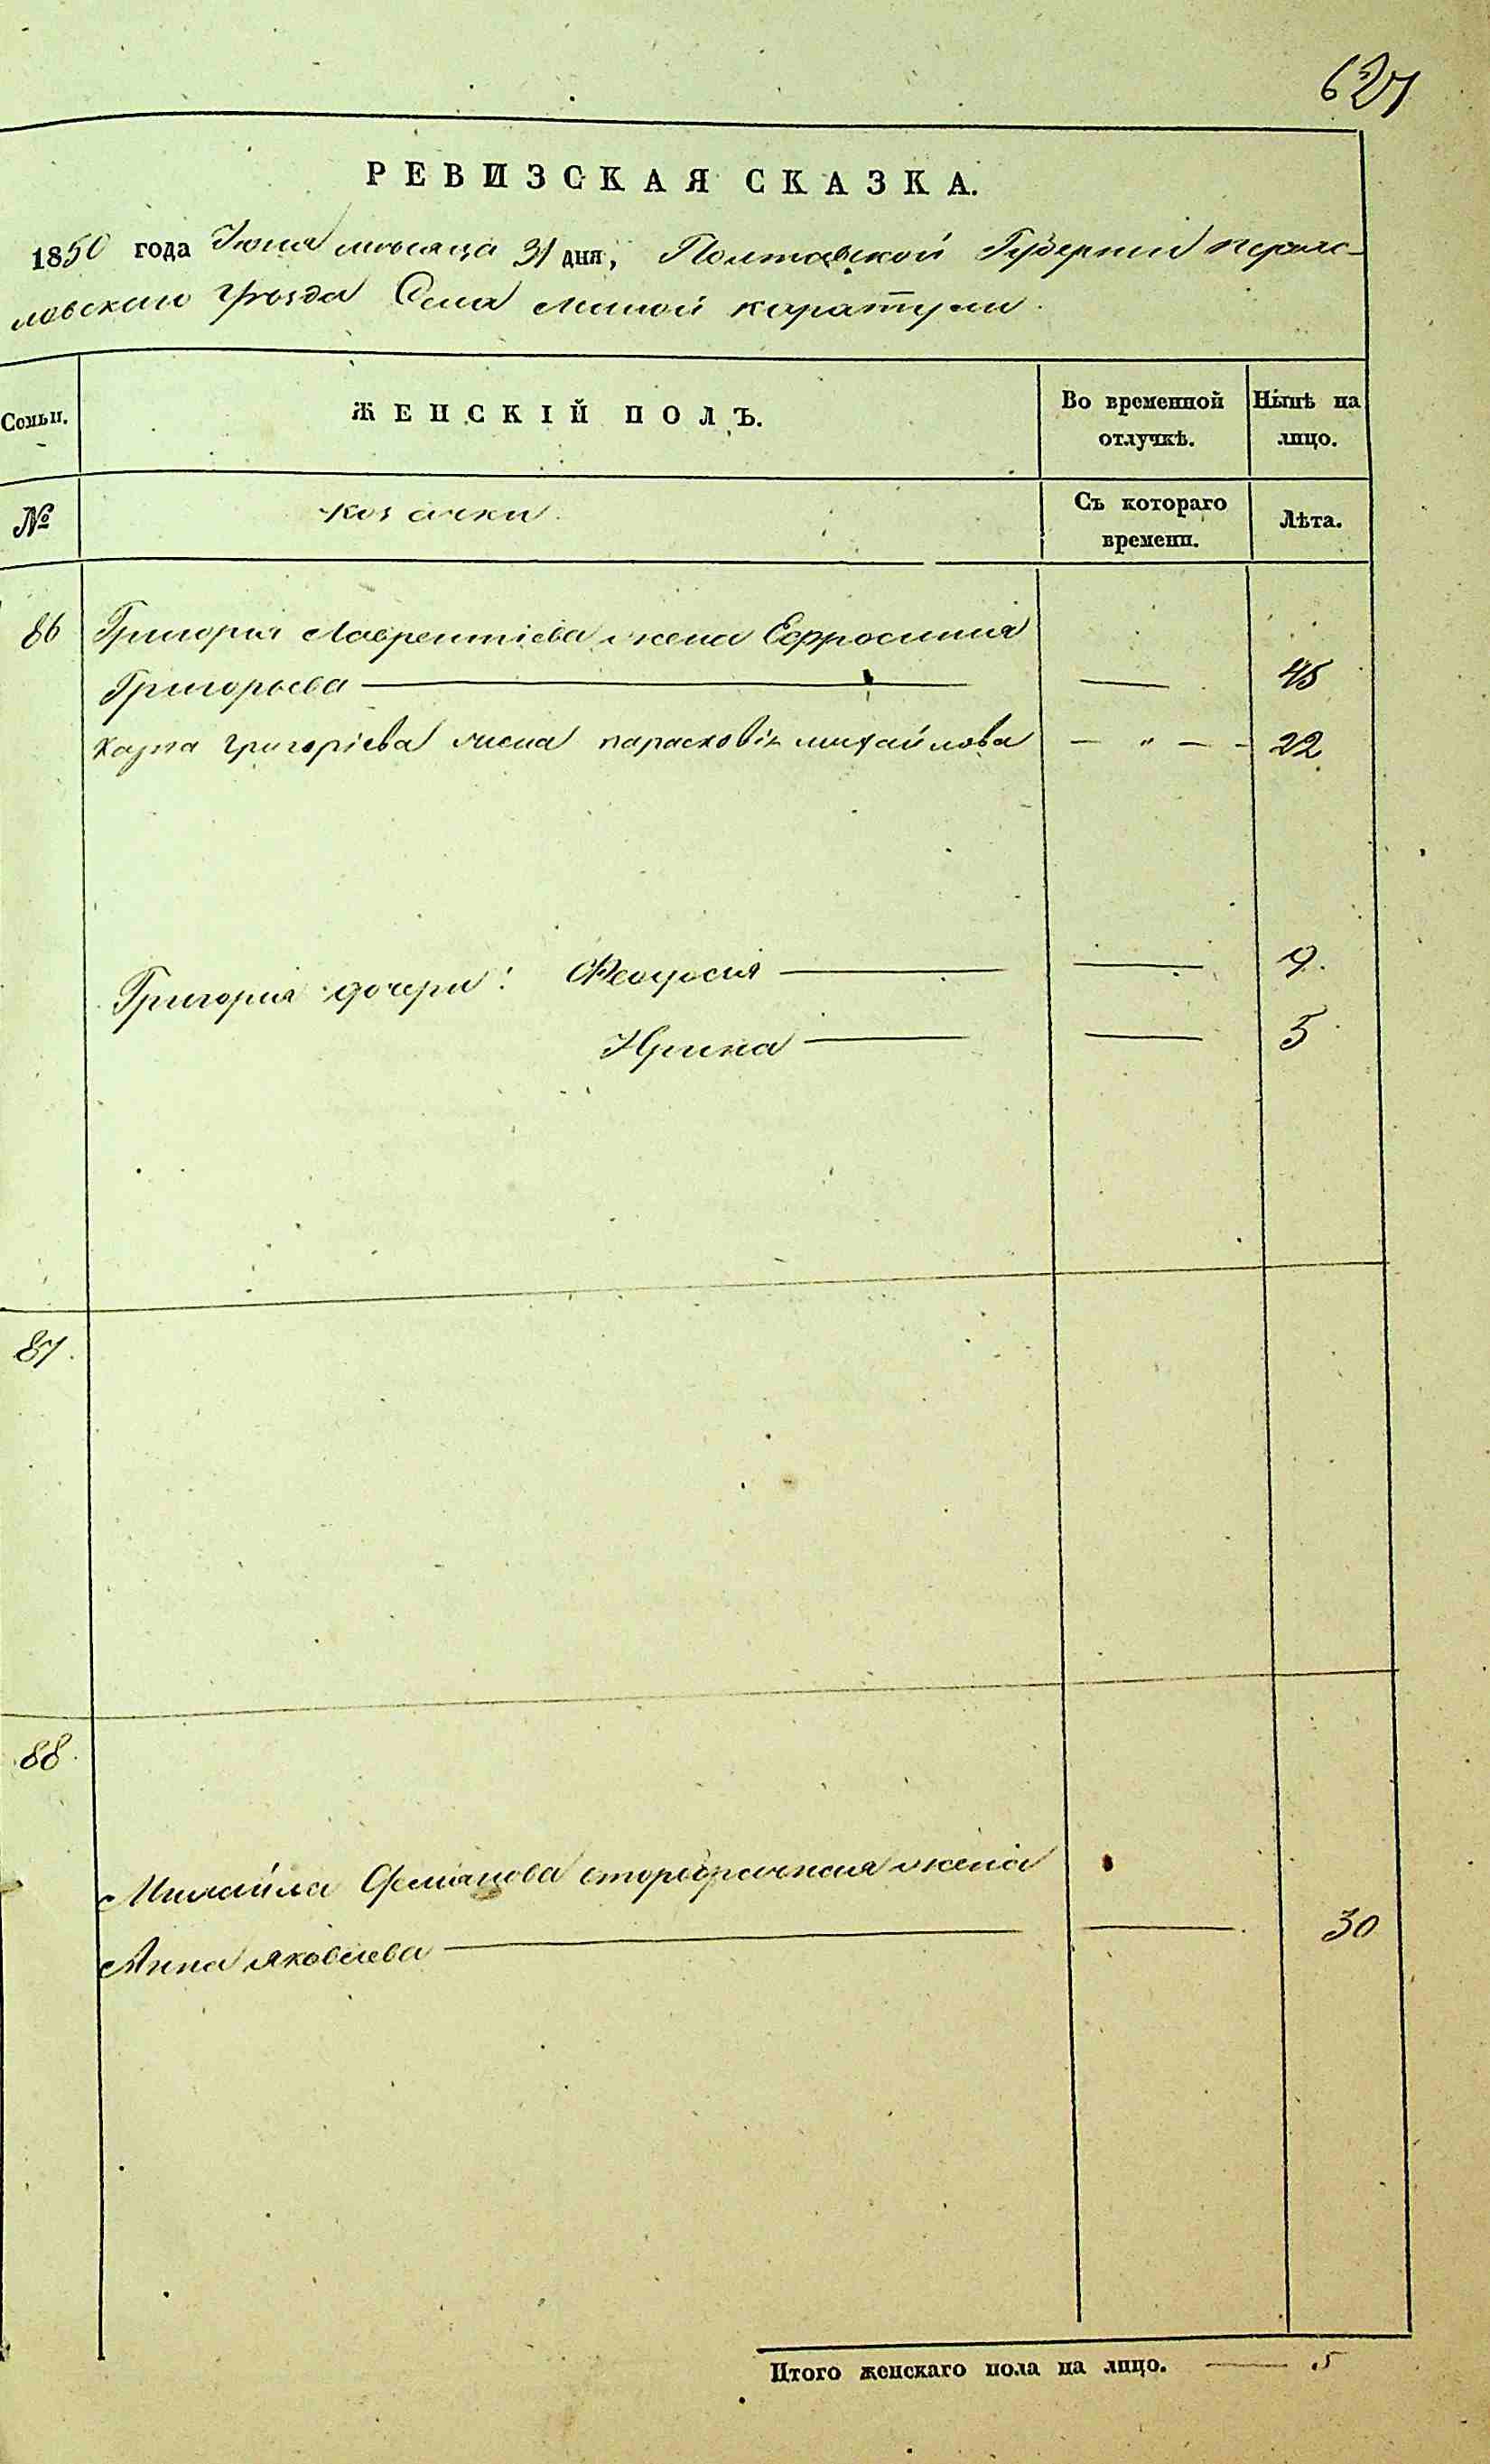 627
РЕВИЗСКАЯ СКАЗКА.
1850 года Июня мѣсяца 31 дня, Полтавской Губерніи переяс-
ловскаго уѣзда Села малой каратули.
Семьи. ЖЕНСКІЙ ПОЛЪ. Во временной отлучкѣ. Нынѣ на лицо.
№ козачки. Съ котораго времени. Лѣта.
86 Григорія Лаврентіева жена Ефросинія
Григорьева — — 45
Карпа григоріева жена парасковія михайлова — " — - 22
Григорія дочери: Феодосія — — 9.
Ирина — — 5
87.
88.
Михайла Семіонова второбрачная жена
Анна яковлева — — 30
Итого женскаго пола на лицо. — 5